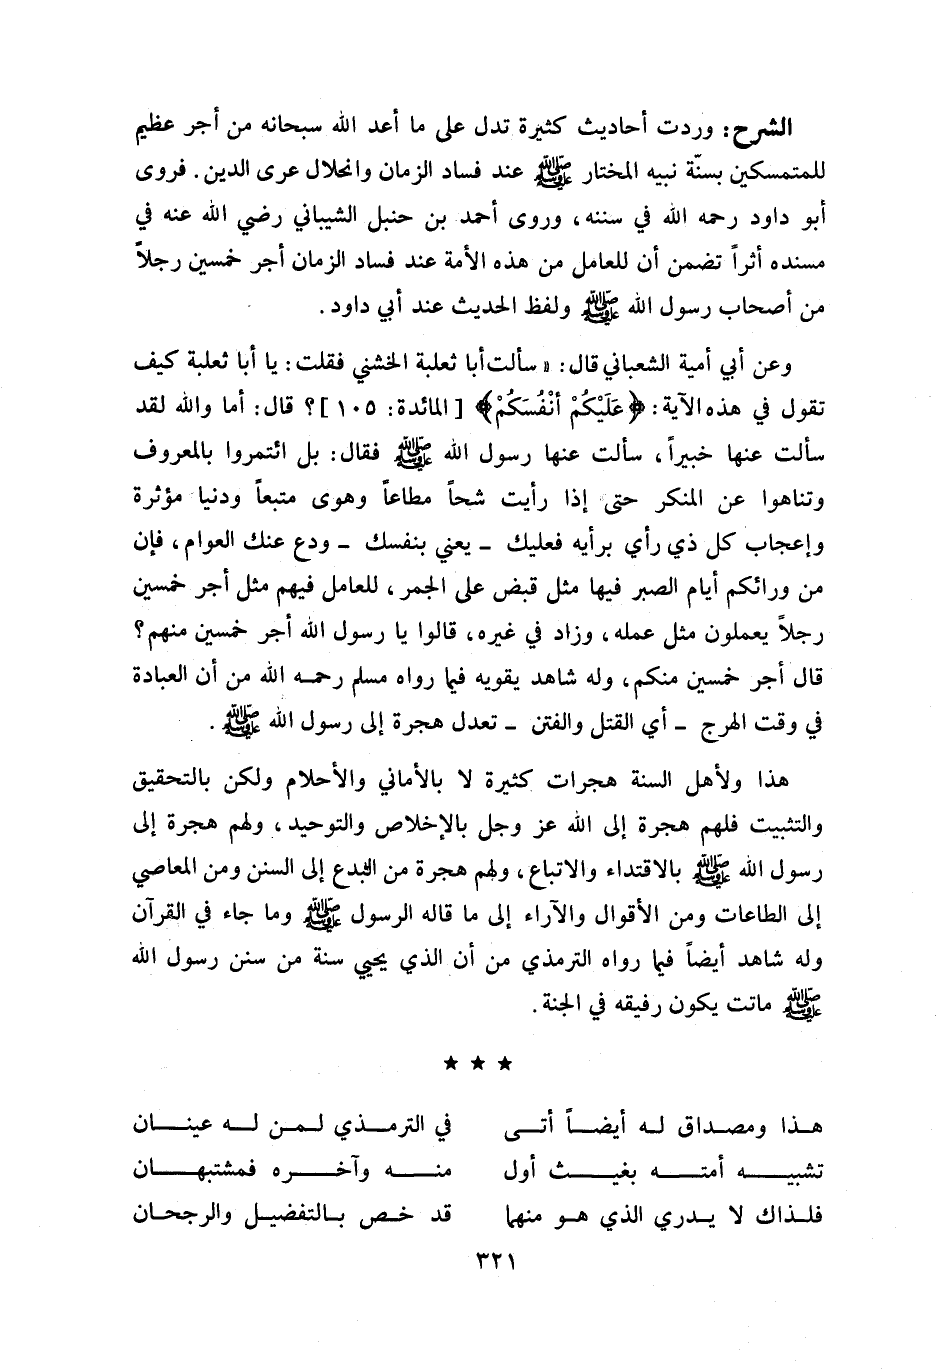 الشرح: وردت أحاديث كثيرة تدل على ما أعد الله سبحانه من أجر عظيم
للمتمسكين بسنّة نبيه المختار ﷺ عند فساد الزمان وانحلال عرى الدين. فروى
أبو داود رحمه الله في سننه، وروى أحمد بن حنبل الشيباني رضي الله عنه في
مسنده أثراً تضمن أن للعامل من هذه الأمة عند فساد الزمان أجر خمسين رجلاً
من أصحاب رسول الله ﷺ ولفظ الحديث عند أبي داود.
وعن أبي أمية الشعباني قال: «سألت أبا ثعلبة الخشني فقلت: يا أبا ثعلبة كيف
تقول في هذه الآية: ﴿عَلَيْكُمْ أَنْفُسَكُمْ﴾ [المائدة: ١٠٥]؟ قال: أما والله لقد
سألت عنها خبيراً، سألت عنها رسول الله ﷺ فقال: بل ائتمروا بالمعروف
وتناهوا عن المنكر حتى إذا رأيت شحاً مطاعاً وهوى متبعاً ودنيا مؤثرة
وإعجاب كل ذي رأي برأيه فعليك ـ يعني بنفسك ـ ودع عنك العوام، فإن
من ورائكم أيام الصبر فيها مثل قبض على الجمر، للعامل فيهم مثل أجر خمسين
رجلاً يعملون مثل عمله، وزاد في غيره، قالوا يا رسول الله أجر خمسين منهم؟
قال أجر خمسين منكم، وله شاهد يقويه فيما رواه مسلم رحمه الله من أن العبادة
في وقت الهرج ـ أي القتل والفتن ـ تعدل هجرة إلى رسول الله ﷺ.
هذا ولأهل السنة هجرات كثيرة لا بالأماني والأحلام ولكن بالتحقيق
والتثبيت فلهم هجرة إلى الله عز وجل بالإخلاص والتوحيد، ولهم هجرة إلى
رسول الله ﷺ بالاقتداء والاتباع، ولهم هجرة من البدع إلى السنن ومن المعاصي
إلى الطاعات ومن الأقوال والآراء إلى ما قاله الرسول ﷺ وما جاء في القرآن
وله شاهد أيضاً فيما رواه الترمذي من أن الذي يحيي سنة من سنن رسول الله
ﷺ ماتت يكون رفيقه في الجنة.
★ ★ ★
هذا ومصداق له أيضاً أتى في الترمذي لمن له عينان
تشبيه أمته بغيث أول منه وآخره فمشتبهان
فلذاك لا يدري الذي هو منهما قد خص بالتفضيل والرجحان
٣٢١